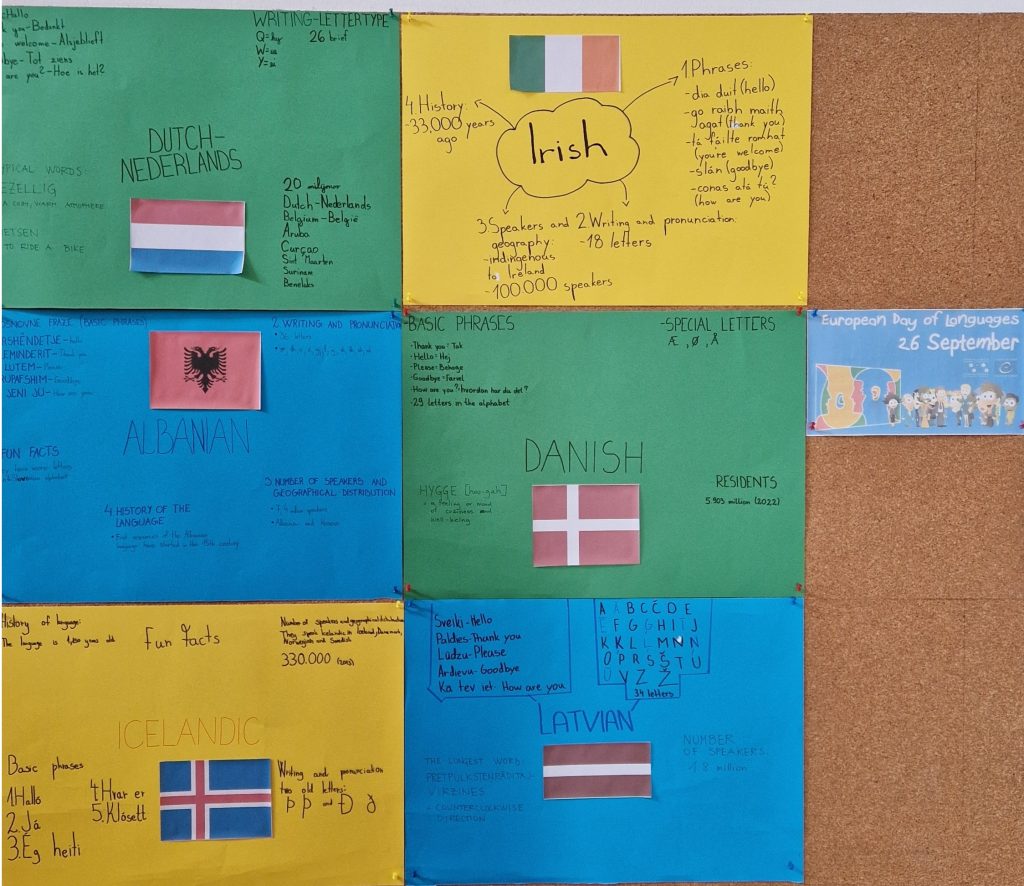 Hallo
ym-Bedankt
welcome-Alsjeblieft
bye-Tot ziens
are you?-Hoe is het?
WRITING-LETTERTYPE
Q=
26 brief
W=
Y=
DUTCH-
NEDERLANDS
YPICAL WORDS:
EZELLIG
A COSY, WARM
IETSEN
TO RIDE A BIKE
20
Dutch-Nederlands
Belgium-België
Aruba
Curçao
Sint Maarten
Surinam
Beneluks
Irish
4. History:
-33,000 years
ago
1. Phrases:
-dia duit (hello)
-go raibh maith
agat (thank you)
-tá fáilte romhat
(youre welcome)
-slán (goodbye)
-conas atá tú?
(how are you)
3. Speakers and
geography:
-indingenous
to Ireland
-100000 speakers
2. Writing and pronunciation:
-18 letters
OSNOVNE FRAZE (BASIC PHRASES)
ËRSHËNDETJE-hello
LEMINDERIT-Thank you
LUTEM-Please
RUPAFSHIM-Goodbye
JENI JU-How are you
2 WRITING AND PRONUNCIATION
36 letters
ALBANIAN
FUN FACTS
alphabet
3 NUMBER OF SPEAKERS AND
GEOGRAPHICAL DISTRIBUTION
speakers
Albania and Kosovo
4 HISTORY OF THE
LANGUAGE
of the Albanian
language have started in the 15th century
BASIC PHRASES
-Thank you=Tak
-Hello=Hej
-Please=Behage
-Goodbye=Farvel
-How are you?=hvordan har du det?
-29 letters in the alphabet
-SPECIAL LETTERS
Æ, Ø, Å
DANISH
HYGGE [hoo-gah]
a feeling or mood
of coziness and
well-being
RESIDENTS
5.903 million (2022)
European Day of Languages
26 September
History of language:
The language is years old
Fun facts
Number of speakers and geographical distribution
They speak Icelandic in Iceland, Denmark,
Norwegian and Swedish
330.000
ICELANDIC
Basic phrases
1. Halló
2. Já
3. Ég heiti
4. Hvar er
5. Klósett
Writing and pronunciation
two old letters:
Þ þ and Ð ð
Sveiki-Hello
Paldies-Thank you
Lūdzu-Please
Ardievu-Goodbye
Ka tev iet-How are you
A Ā B C Č D E
Ē F G Ģ H I Ī J
K Ķ L Ļ M N Ņ
O P R S Š T U
Ū V Z Ž
34 letters
LATVIAN
THE LONGEST WORD:
PRETPULKSTENRĀDĪTĀJ-
VIRZIENS
= COUNTERCLOCKWISE
DIRECTION
NUMBER
OF SPEAKERS:
1.8 million